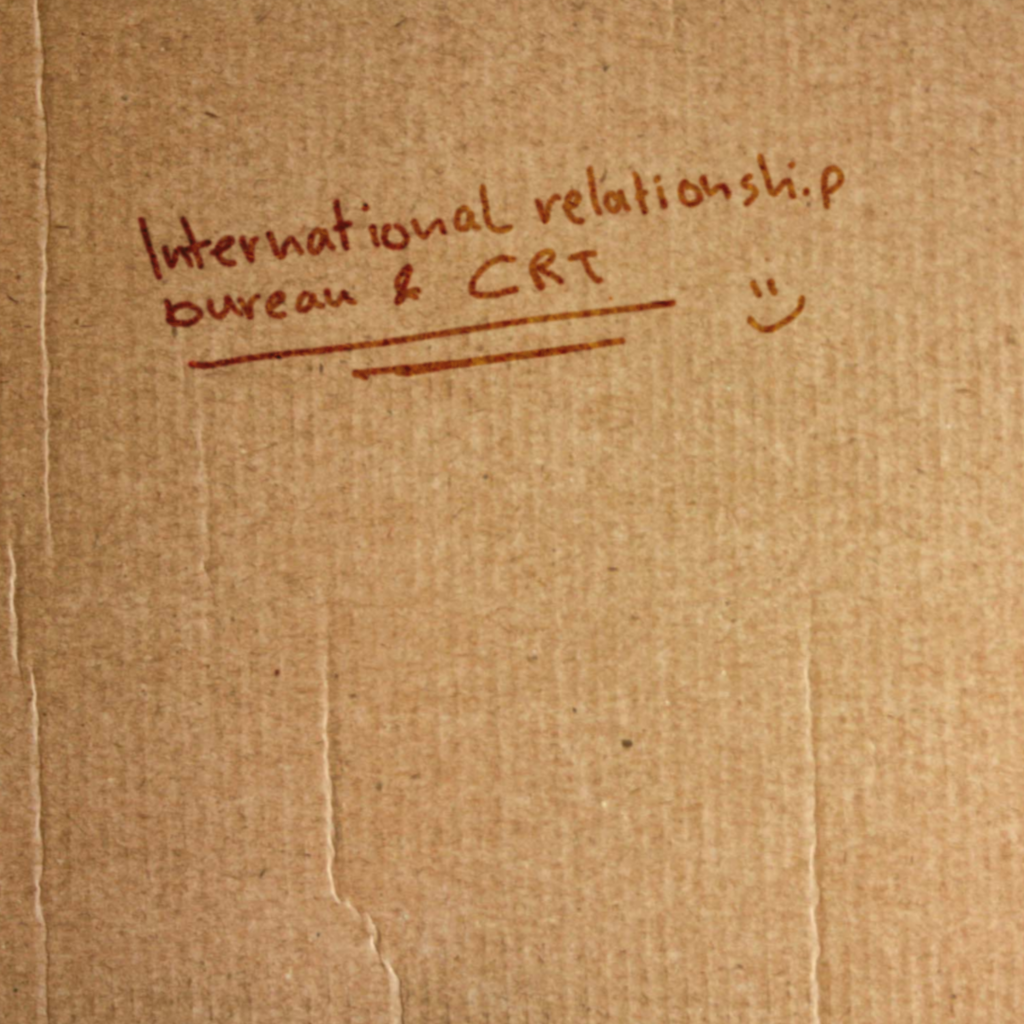 International relationship
bureau & CRT